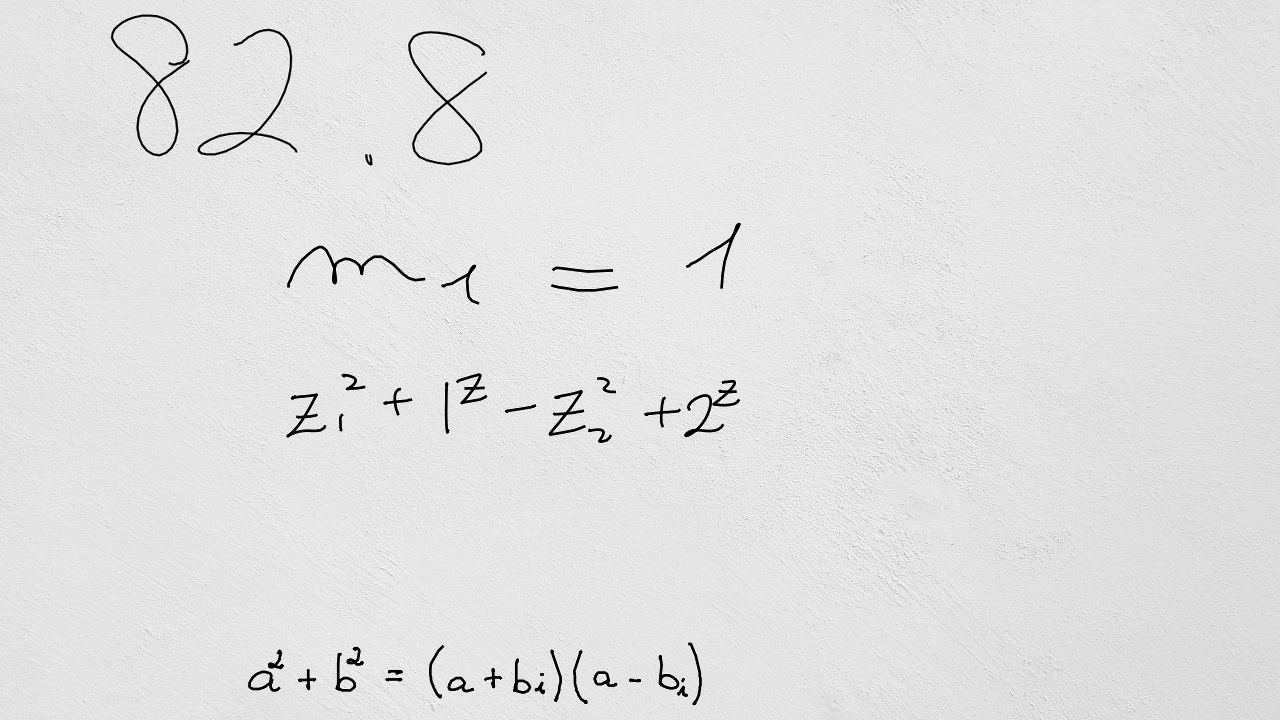 82.8
m₁ = 1
z₁² + 1ᶻ - z₂² + 2ᶻ
a² + b² = (a + bi)(a - bi)